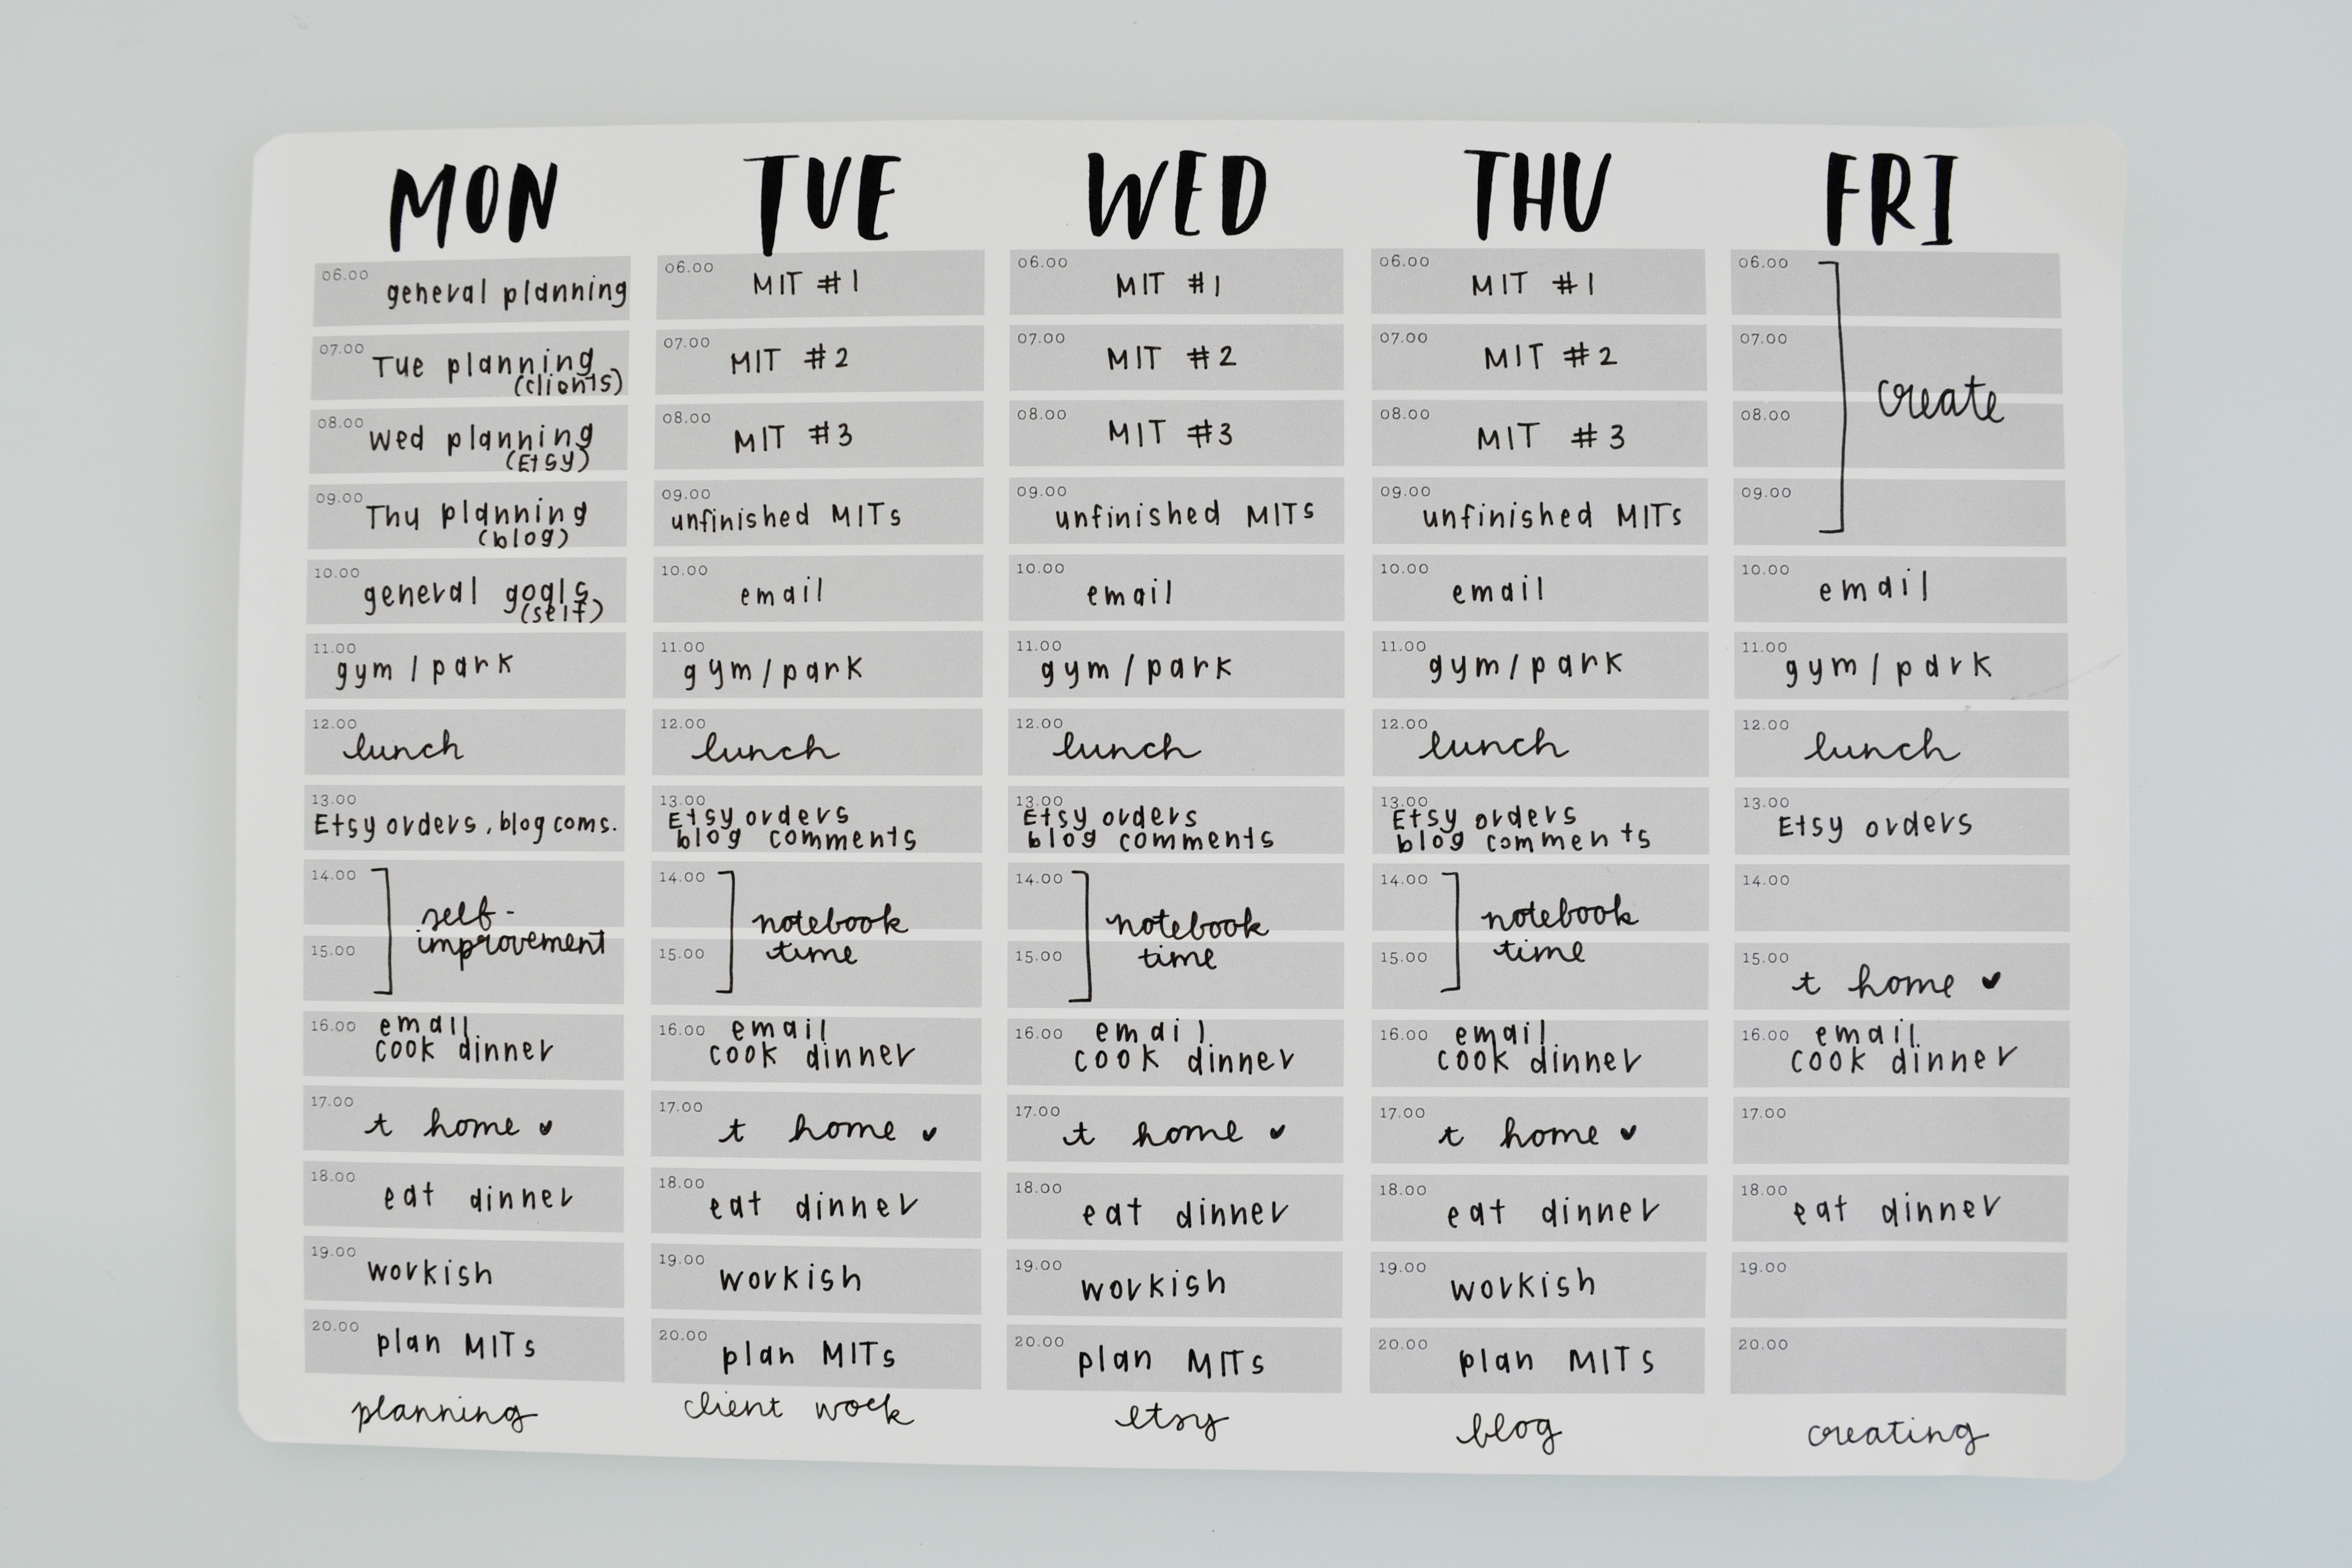 MON TUE WED THU FRI
06.00 general planning 06.00 MIT #1 06.00 MIT #1 06.00 MIT #1 06.00
07.00 Tue planning (clients) 07.00 MIT #2 07.00 MIT #2 07.00 MIT #2 07.00
create
08.00 Wed planning (Etsy) 08.00 MIT #3 08.00 MIT #3 08.00 MIT #3 08.00
09.00 Thu planning (blog) 09.00 unfinished MITs 09.00 unfinished MITs 09.00 unfinished MITs 09.00
10.00 general goals (self) 10.00 email 10.00 email 10.00 email 10.00 email
11.00 gym / park 11.00 gym / park 11.00 gym / park 11.00 gym / park 11.00 gym / park
12.00 lunch 12.00 lunch 12.00 lunch 12.00 lunch 12.00 lunch
13.00 Etsy orders, blog coms. 13.00 Etsy orders blog comments 13.00 Etsy orders blog comments 13.00 Etsy orders blog comments 13.00 Etsy orders
14.00 self- 14.00 notebook 14.00 notebook 14.00 notebook 14.00
15.00 improvement 15.00 time 15.00 time 15.00 time 15.00 t home
16.00 email cook dinner 16.00 email cook dinner 16.00 email cook dinner 16.00 email cook dinner 16.00 email cook dinner
17.00 t home 17.00 t home 17.00 t home 17.00 t home 17.00
18.00 eat dinner 18.00 eat dinner 18.00 eat dinner 18.00 eat dinner 18.00 eat dinner
19.00 workish 19.00 workish 19.00 workish 19.00 workish 19.00
20.00 plan MITs 20.00 plan MITs 20.00 plan MITs 20.00 plan MITs 20.00
planning client work etsy blog creating